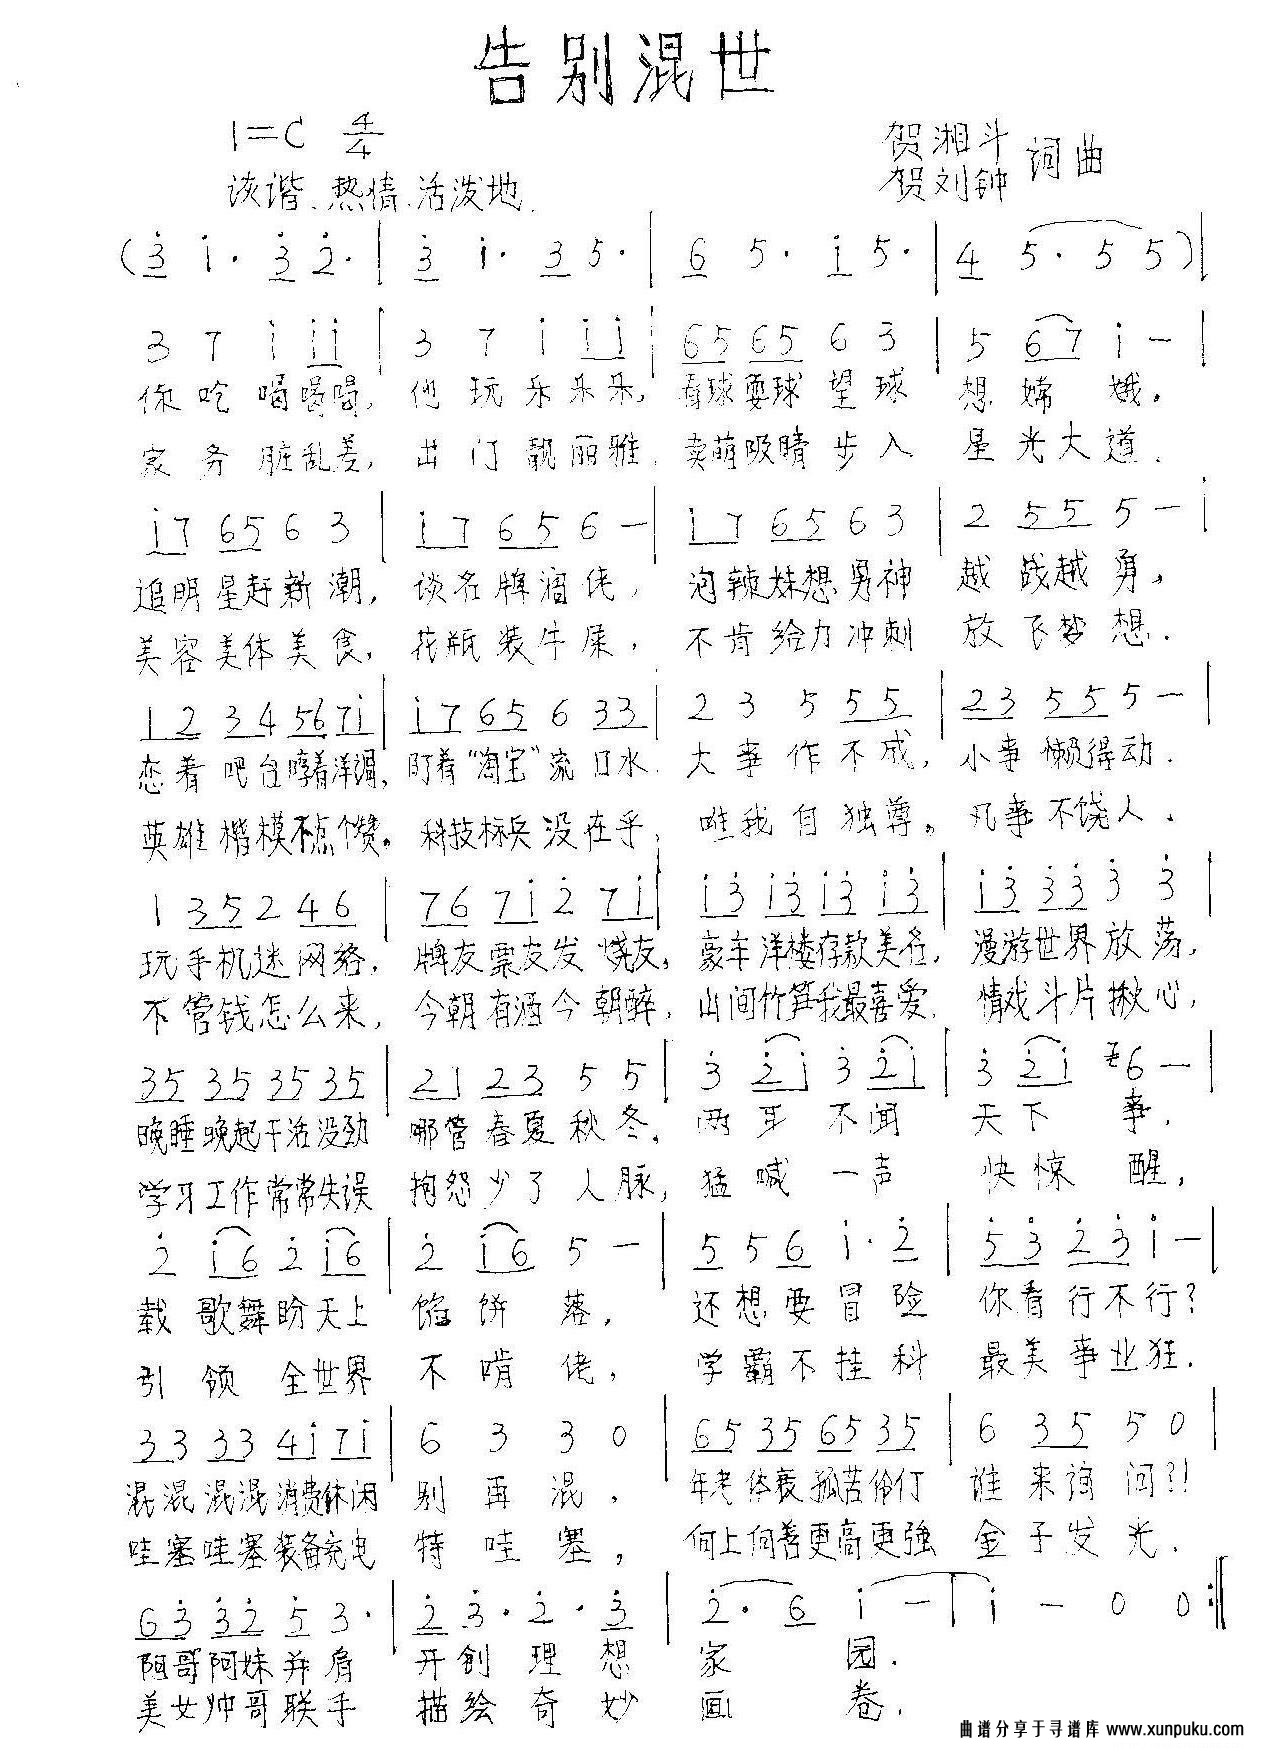 告别混世
1=C 4/4
贺湘斗
贺刘钟 词曲
诙谐、热情、活泼地.
(3 i· 3 2· | 3 i· 3 5· | 6 5· i 5· | 4 5· 5 5 ) |
3 7 i i i | 3 7 i i i | 6 5 6 5 6 3 | 5 6 7 i — |
你吃喝喝喝, 他玩乐乐乐, 看球耍球望球 想嫦娥。
家务脏乱差, 出门靓丽雅, 卖萌吸睛步入 星光大道.
i 7 6 5 6 3 | i 7 6 5 6 — | i 7 6 5 6 3 | 2 5 5 5 — |
追明星赶新潮, 谈名牌酒佬, 泡辣妹想男神 越战越勇,
美容美体美食, 花瓶装牛屎, 不肯给力冲刺 放飞梦想.
1 2 3 4 5 6 7 i | i 7 6 5 6 3 3 | 2 3 5 5 5 | 2 3 5 5 5 — |
恋着吧台哼着洋调, 盯着“淘宝”流口水. 大事作不成, 小事懒得动.
英雄楷模不点个赞。 科技标兵没在乎, 唯我自独尊。 凡事不饶人.
1 3 5 2 4 6 | 7 6 7 i 2 7 i | i 3 i 3 i 3 i 3 | i 3 3 3 3 3 |
玩手机迷网络, 牌友票友发烧友, 豪车洋楼存款美名, 漫游世界放荡,
不管钱怎么来, 今朝有酒今朝醉, 山间竹笋我最喜爱, 情戏斗片揪心,
3 5 3 5 3 5 3 5 | 2 1 2 3 5 5 | 3 2 i 3 2 i | 3 2 i 6 — |
晚睡晚起干活没劲 哪管春夏秋冬, 两耳不闻 天下事,
学习工作常常失误 抱怨少了人脉, 猛喊一声 快惊醒,
2 i 6 2 i 6 | 2 i 6 5 — | 5 5 6 i· 2 | 5 3 2 3 i — |
载歌舞盼天上 馅饼落, 还想要冒险 你看行不行?
引领全世界 不啃佬, 学霸不挂科 最美事业狂.
3 3 3 3 4 i 7 i | 6 3 3 0 | 6 5 3 5 6 5 3 5 | 6 3 5 5 0 |
混混混混消费休闲 别再混, 年老体衰孤苦伶仃 谁来询问?!
哇塞哇塞装备充电 特哇塞, 向上向善更高更强 金子发光.
6 3 3 2 5 3· | 2 3· 2· 3 | 2· 6 i — | i — 0 0 :||
阿哥阿妹并肩 开创理想 家园.
美女帅哥联手 描绘奇妙 画卷.
曲谱分享于寻谱库 www.xunpuku.com